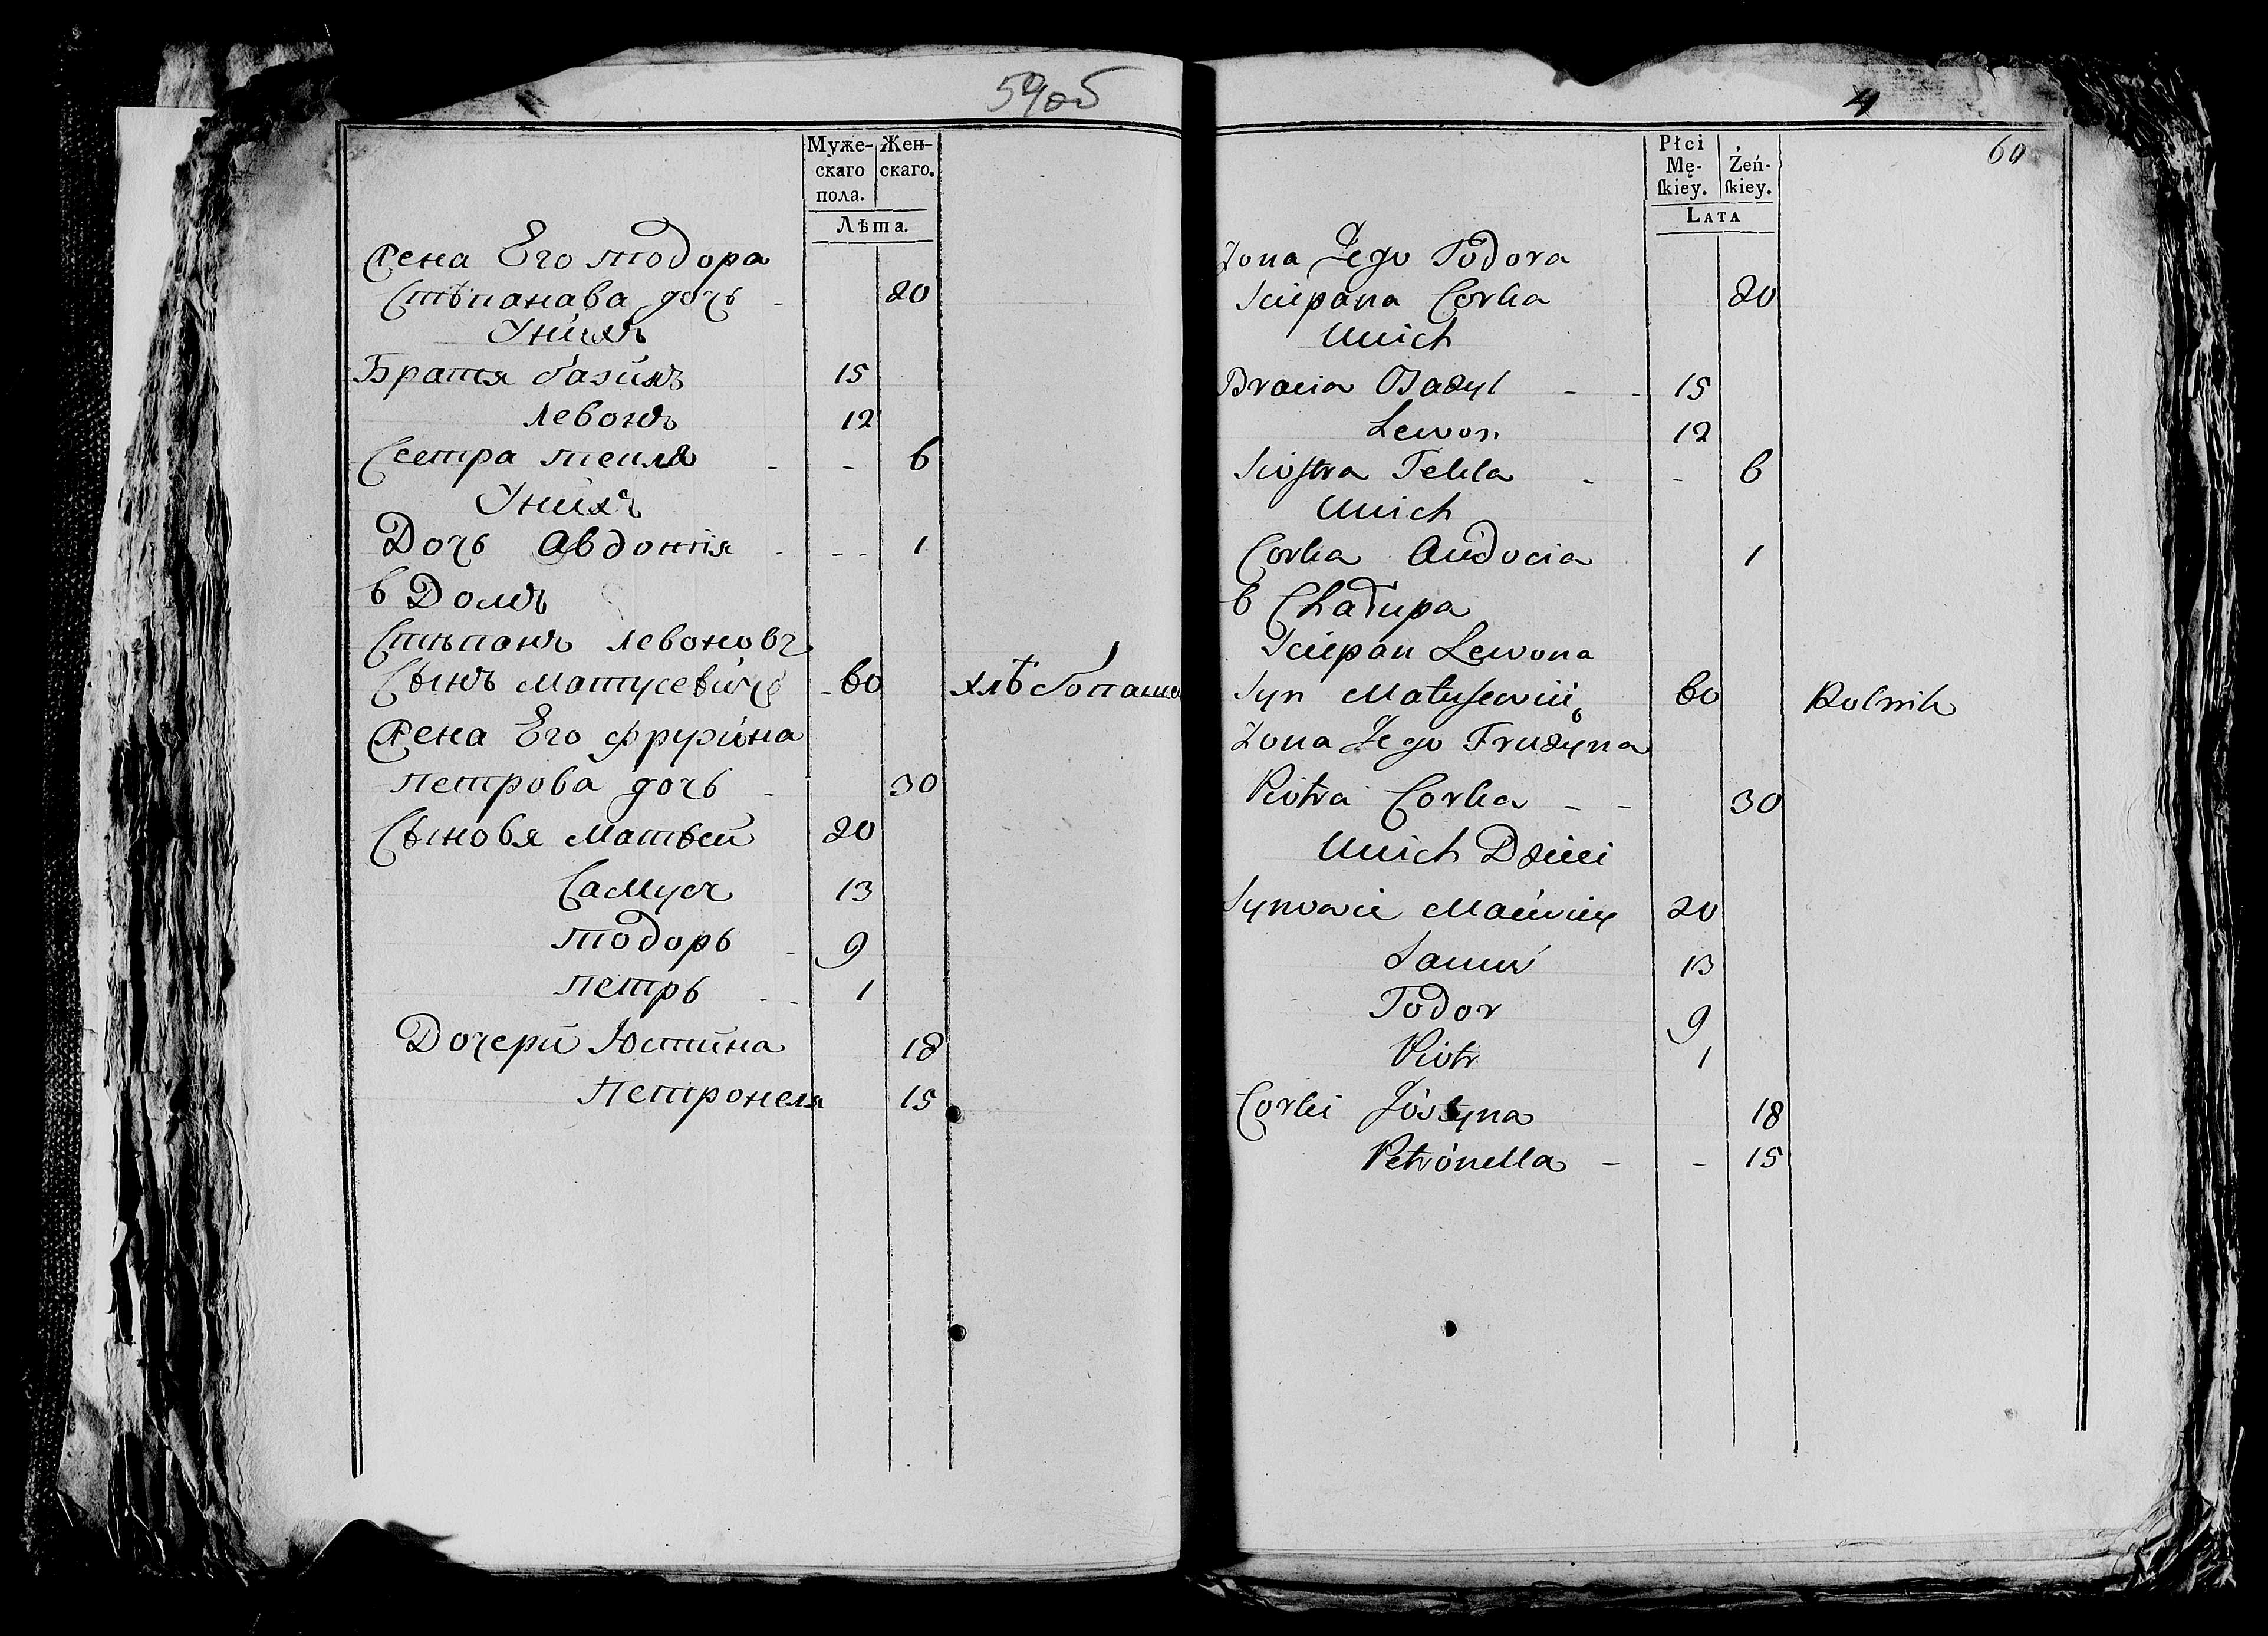 59об
Муже-
скаго
пола.
Жен-
скаго.
Лѣта.
Жена Его тодора
Стѣпанава дочь - 20
Унихъ
Братя базилъ 15
левонъ 12
Сестра текля - - 6
Унихъ
Дочь Авдоптія - - - 1
6 Домъ
Стѣпанъ левоновъ
Сынъ матусевичъ - 60 хлѣбопаше
Жена Его фрузына
петрова дочь - 30
Сыновя матвей 20
Самусь 13
тодоръ - 9
петръ - - 1
Дочери Юстина 18
Петронеля 15
4
60
Płci
Mę-
ſkiey.
Żeń-
ſkiey.
LATA
Żona Jego Todora
Sciepana Corka 20
Unich
Bracia Bazyl - - 15
Lewon 12
Siostra Tekla - - 6
Unich
Corka Audocia 1
6 Chałupa
Sciepan Lewona
Syn Matusewicz 60 Rolnik
Żona Jego Fruzyna
Piotra Corka - - 30
Unich Dzieci
Synowie Maćwiey 20
Samuś 13
Todor 9
Piotr 1
Corki Jóstyna 18
Petrónella - - 15